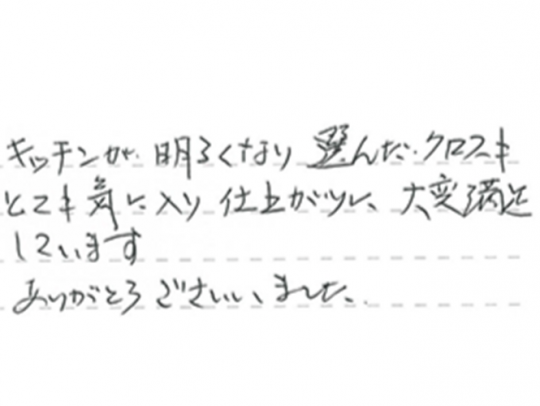 キッチンが明るくなり 選んだクロスも
とても気に入り 仕上がりに、大変満足
しています
ありがとうございました。